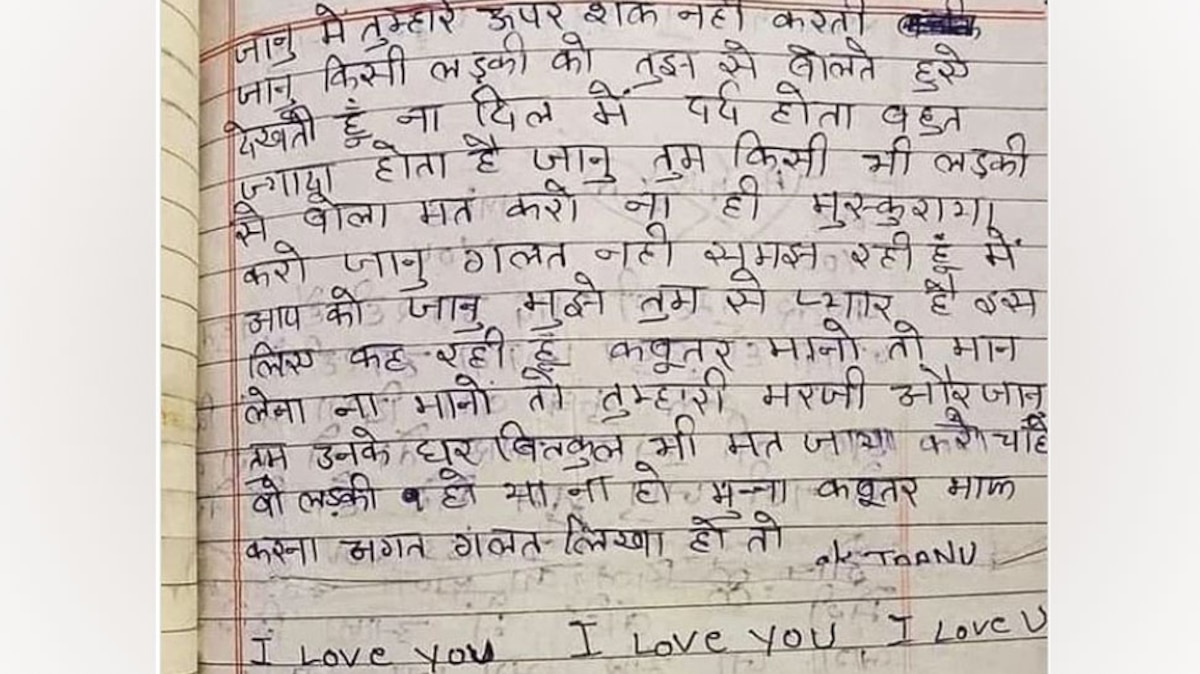 जानु में तुम्हारे ऊपर शक नही करती
जानु किसी लड़की को तुझ से बोलते हुऐ
देखती हूँ ना दिल में दर्द होता बहुत
ज्यादा होता है जानु तुम किसी भी लड़की
से बोला मत करो ना ही मुस्कुराया
करो जानु गलत नही समझ रही हूँ में
आप को जानु मुझे तुम से प्यार है इस
लिए कह रही हूँ कबूतर मानो तो मान
लेना ना मानो तो तुम्हारी मरजी और जानु
तुम उनके घर बिलकुल भी मत जाया करो चाहे
वो लड़की हो या ना हो मुन्ना कबूतर माफ
करना अगत गलत लिखा हो तो
I Love you I Love you I Love U